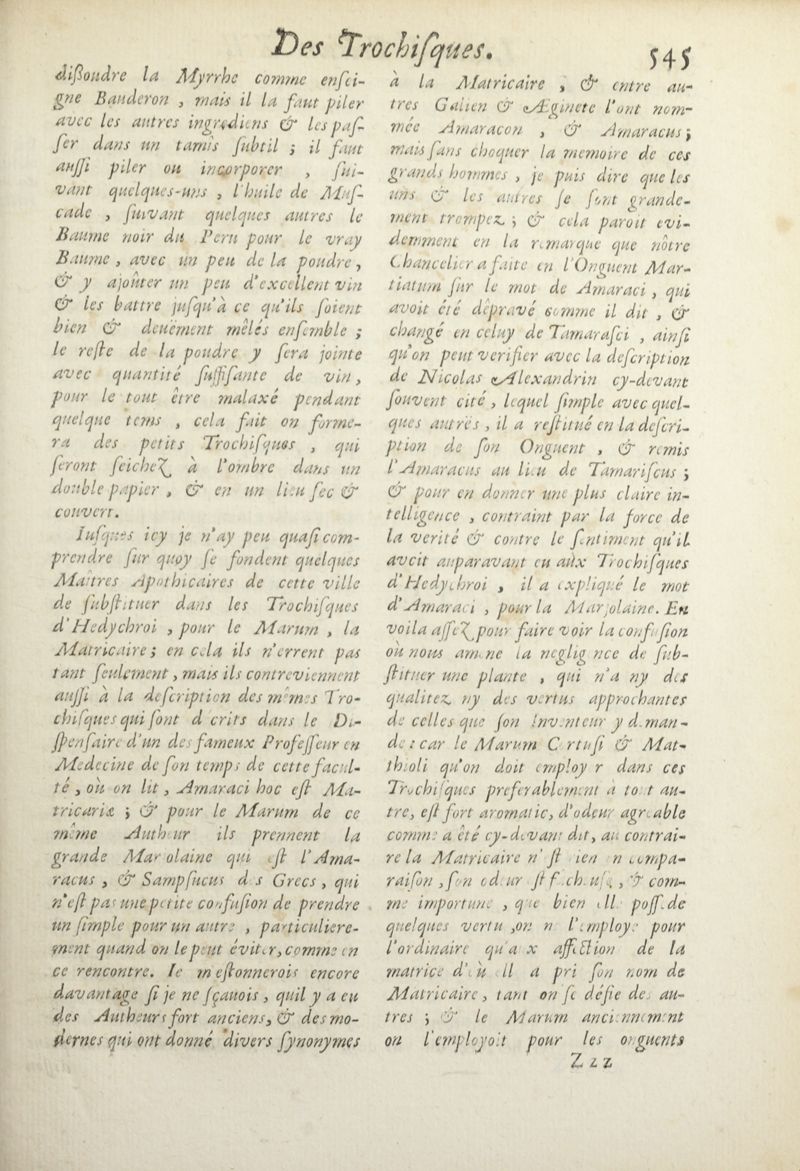 Des Trochiſques. 545
diſſoudre la Myrrhe comme enſei-
gne Bauderon , mais il la faut piler
avec les autres ingrediens & les paſ-
ſer dans un tamis ſubtil ; il faut
auſſi piler ou incorporer , ſui-
vant quelques-uns , l'huile de Muſ-
cade , ſuivant quelques autres le
Baume noir du Peru pour le vray
Baume , avec un peu de la poudre ,
& y ajoûter un peu d'excellent vin
& les battre juſqu'à ce qu'ils ſoient
bien & deuëment mêlés enſemble ;
le reſte de la poudre y ſera jointe
avec quantité ſuffiſante de vin ,
pour le tout être malaxé pendant
quelque tems , cela fait on forme-
ra des petits Trochiſques , qui
ſeront ſeichez à l'ombre dans un
double papier , & en un lieu ſec &
couvert.
Iuſques icy je n'ay peu quaſi com-
prendre ſur quoy ſe fondent quelques
Maîtres Apothicaires de cette ville
de ſubſtituer dans les Trochiſques
d'Hedychroi , pour le Marum , la
Matricaire ; en cela ils n'errent pas
tant ſeulement , mais ils contreviennent
auſſi à la deſcription des mêmes Tro-
chiſques qui ſont d crits dans le Di-
ſpenſaire d'un des fameux Profeſſeur en
Medecine de ſon temps de cette facul-
té , où on lit , Amaraci hoc eſt Ma-
tricariæ ; & pour le Marum de ce
même Autheur ils prennent la
grande Mar olaine qui eſt l'Ama-
racus , & Sampſucus d s Grecs , qui
n'eſt pas une petite confuſion de prendre
un ſimple pour un autre , particuliere-
ment quand on le peut éviter, comme en
ce rencontre. Ie m'eſtonnerois encore
davantage ſi je ne ſçauois , quil y a eu
des Autheurs fort anciens, & des mo-
dernes qui ont donné divers ſynonymes
à la Matricaire , & entre au-
tres Galien & Æginete l'ont nom-
mée Amaracon , & Amaracus ;
mais ſans choquer la memoire de ces
grands hommes , je puis dire que les
uns & les autres ſe ſont grande-
ment trompez ; & cela paroit evi-
demment en la remarque que nôtre
Chancelier a faite en l'Onguent Mar-
tiatum ſur le mot de Amaraci , qui
avoit été dépravé comme il dit , &
changé en celuy de Tamaraſci , ainſi
qu'on peut verifier avec la deſcription
de Nicolas Alexandrin cy-devant
ſouvent cité , lequel ſimple avec quel-
ques autres , il a reſtitué en la deſcri-
ption de ſon Onguent , & remis
l'Amaracus au lieu de Tamariſcus ;
& pour en donner une plus claire in-
telligence , contraint par la force de
la verité & contre le ſentiment qu'il
avoit auparavant eu aux Trochiſques
d'Hedychroi , il a expliqué le mot
d'Amaraci , pour la Marjolaine. En
voila aſſez pour faire voir la confuſion
où nous amene la neglig nce de ſub-
ſtituer une plante , qui n'a ny des
qualitez ny des vertus approchantes
de celles que ſon inventeur y deman-
de : car le Marum C rtuſi & Mat-
thioli qu'on doit employ r dans ces
Trochiſques preferablement à tout au-
tre, eſt fort aromatic, d'odeur agreable
comme a été cy-devant dit, au contrai-
re la Matricaire n' ſt ien n compa-
raiſon , ſon odeur ſt f ch uſe , & com-
me importune , que bien elle poſſede
quelques vertu ,on n l'employe pour
l'ordinaire qu'a x affection de la
matrice d' ù ll a pri ſon nom de
Matricaire , tant on ſe défie des au-
tres ; & le Marum anciennement
on l'employoit pour les onguents
Z z z